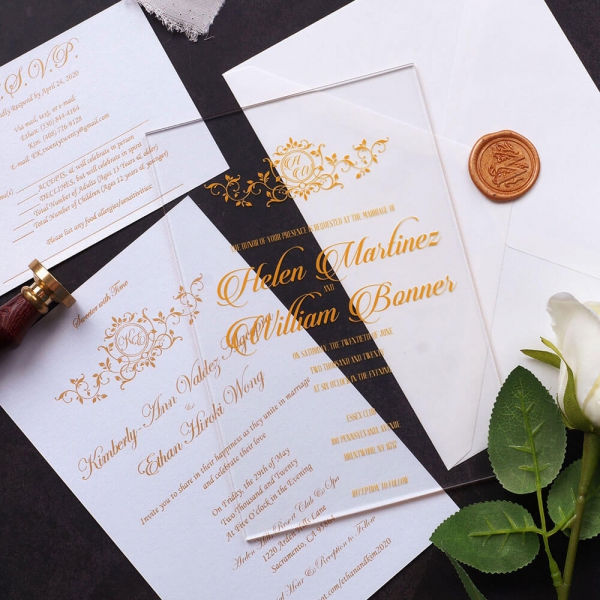 R.S.V.P.
Kindly Respond by April 24, 2020
Via mail, text, or e-mail.
Ethan: (530) 844-4164
Kim: (408) 726-8128
E-mail:
ACCEPTS, & will celebrate in person
DECLINES, but will celebrate in spirit
Total Number of Adults (Ages 13 Years & older)
Total Number of Children (Ages 12 years & younger)
Please list any food allergies/sensitivities:
Sweeter with Time
Kimberly-Ann Valdez
&
Ethan Hiroki Wong
Invite you to share in their happiness as they unite in marriage
and celebrate their love
On Friday, the 29th of May
Two Thousand and Twenty
At Five O'clock in the Evening
Arden Resort Club & Spa
1220 Arden Hills Court
Sacramento, CA
Hour & Reception to Follow
.com/ethanandkim2020
THE HONOR OF YOUR PRESENCE IS REQUESTED AT THE MARRIAGE OF
Helen Martinez
AND
William Bonner
ON SATURDAY, THE TWENTIETH OF JUNE
TWO THOUSAND AND TWENTY
AT SIX O'CLOCK IN THE EVENING
ESSEX CLUB
100 PENNSYLVANIA AVENUE
BRENTWORK, NY
RECEPTION TO FOLLOW
W